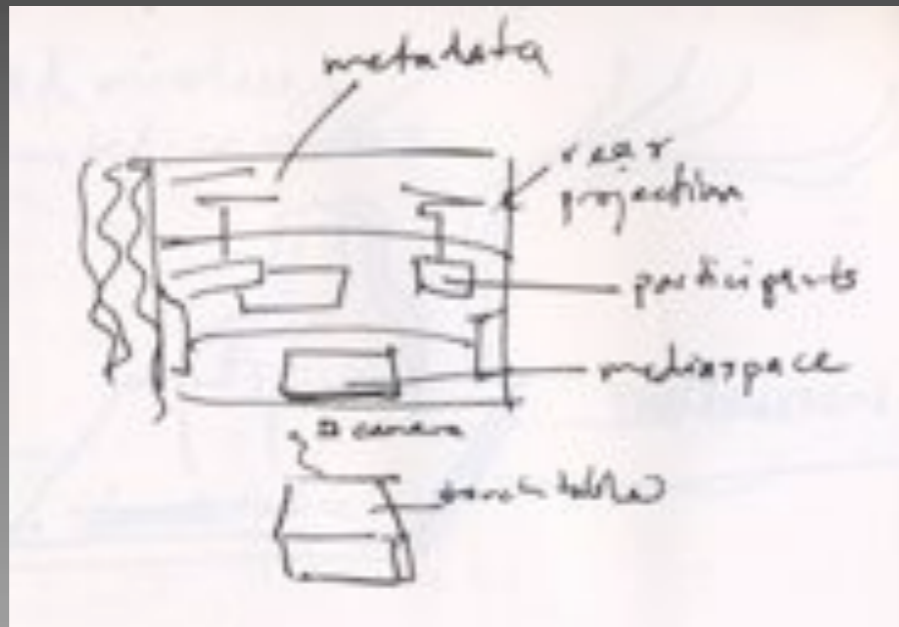 metadata
rear
projection
participants
mediaspace
camera
touch table